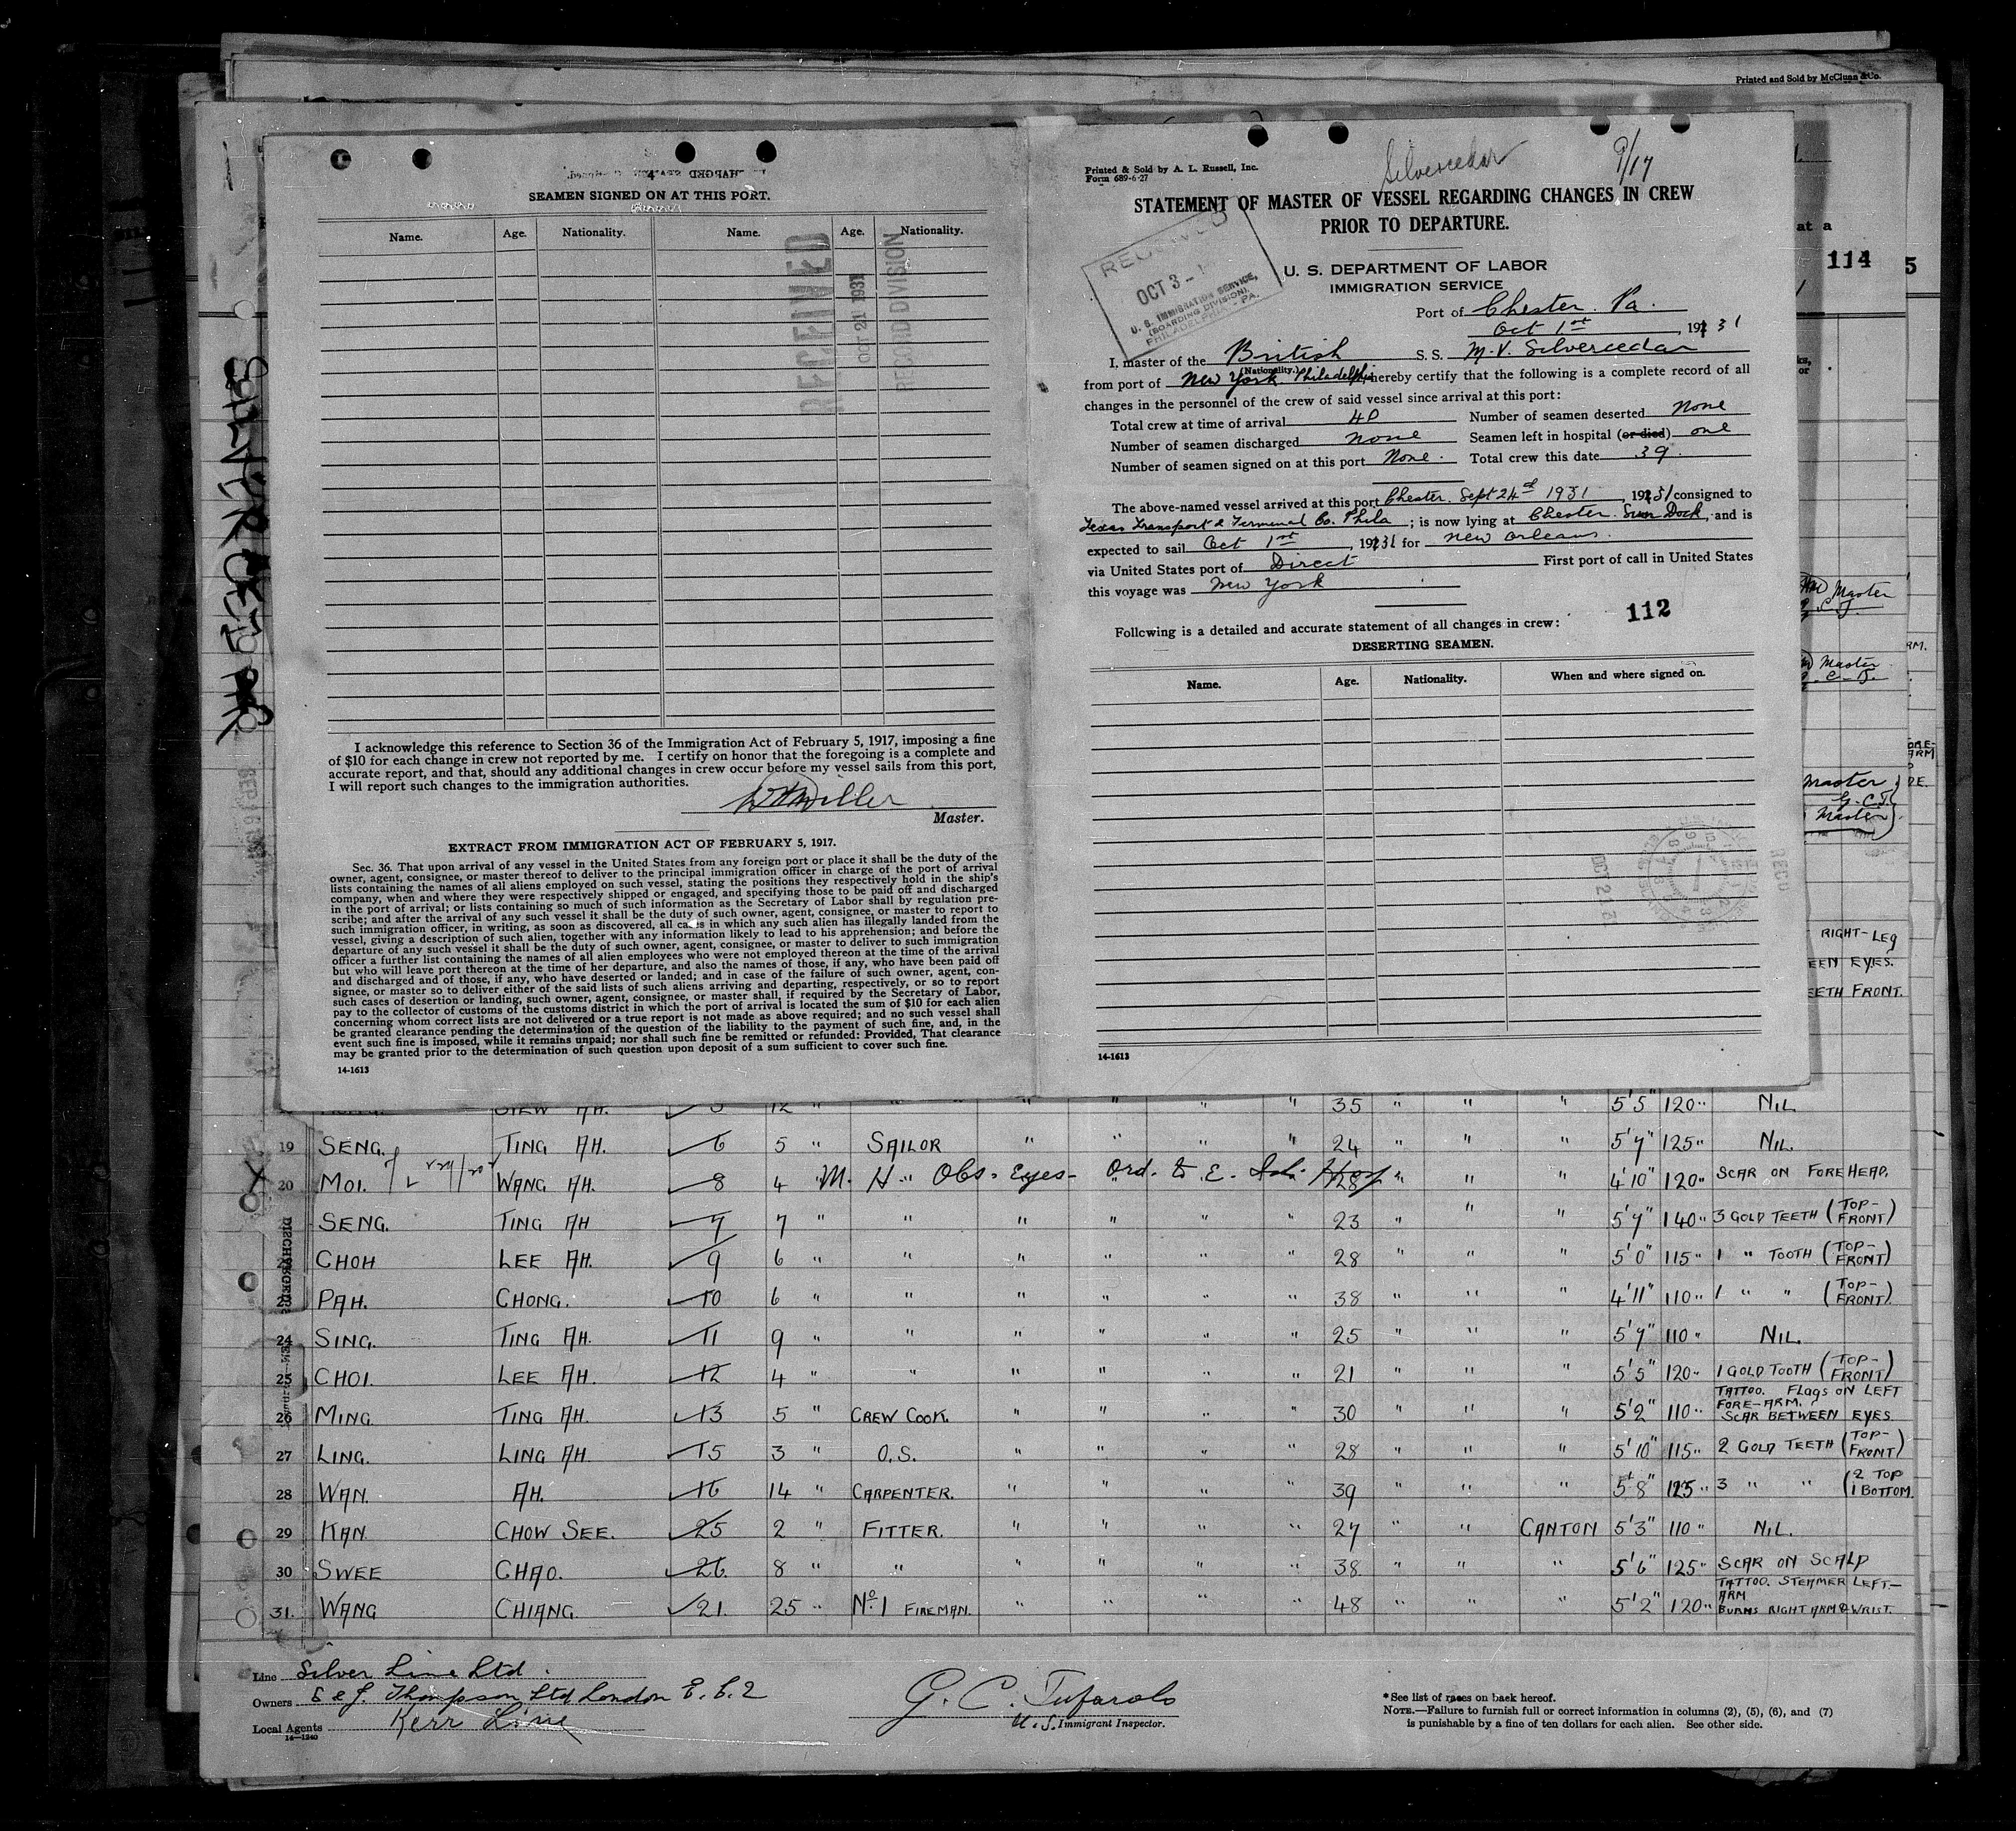 Printed and Sold by McClunn & Co.
SEAMEN SIGNED ON AT THIS PORT.
Name. Age. Nationality. Name. Age. Nationality.
RECEIVED
OCT 21 1931
RECORD DIVISION
I acknowledge this reference to Section 36 of the Immigration Act of February 5, 1917, imposing a fine
of $10 for each change in crew not reported by me. I certify on honor that the foregoing is a complete and
accurate report, and that, should any additional changes in crew occur before my vessel sails from this port,
I will report such changes to the immigration authorities.
Master.
EXTRACT FROM IMMIGRATION ACT OF FEBRUARY 5, 1917.
Sec. 36. That upon arrival of any vessel in the United States from any foreign port or place it shall be the duty of the
owner, agent, consignee, or master thereof to deliver to the principal immigration officer in charge of the port of arrival
lists containing the names of all aliens employed on such vessel, stating the positions they respectively hold in the ship's
company, when and where they were respectively shipped or engaged, and specifying those to be paid off and discharged
in the port of arrival; or lists containing so much of such information as the Secretary of Labor shall by regulation pre-
scribe; and after the arrival of any such vessel it shall be the duty of such owner, agent, consignee, or master to report to
such immigration officer, in writing, as soon as discovered, all cases in which any such alien has illegally landed from the
vessel, giving a description of such alien, together with any information likely to lead to his apprehension; and before the
departure of any such vessel it shall be the duty of such owner, agent, consignee, or master to deliver to such immigration
officer a further list containing the names of all alien employees who were not employed thereon at the time of the arrival
but who will leave port thereon at the time of her departure, and also the names of those, if any, who have been paid off
and discharged and of those, if any, who have deserted or landed; and in case of the failure of such owner, agent, con-
signee, or master so to deliver either of the said lists of such aliens arriving and departing, respectively, or so to report
such cases of desertion or landing, such owner, agent, consignee, or master shall, if required by the Secretary of Labor,
pay to the collector of customs of the customs district in which the port of arrival is located the sum of $10 for each alien
concerning whom correct lists are not delivered or a true report is not made as above required; and no such vessel shall
be granted clearance pending the determination of the question of the liability to the payment of such fine, and, in the
event such fine is imposed, while it remains unpaid; nor shall such fine be remitted or refunded: Provided, That clearance
may be granted prior to the determination of such question upon deposit of a sum sufficient to cover such fine.
14-1613
Silvercedar 9/17
Printed & Sold by A. L. Russell, Inc.
Form 689-6-27
STATEMENT OF MASTER OF VESSEL REGARDING CHANGES IN CREW
PRIOR TO DEPARTURE.
RECEIVED
OCT 3 - 1
U. S. IMMIGRATION SERVICE,
(BOARDING DIVISION),
PHILADELPHIA - PA.
U. S. DEPARTMENT OF LABOR
IMMIGRATION SERVICE
Port of Chester. Pa.
Oct 1st, 1931
I, master of the British S. S. M.V. Silvercedar
(Nationality.)
from port of New York Philadelphia hereby certify that the following is a complete record of all
changes in the personnel of the crew of said vessel since arrival at this port:
Total crew at time of arrival 40 Number of seamen deserted None
Number of seamen discharged None Seamen left in hospital (or died) one
Number of seamen signed on at this port None. Total crew this date 39.
The above-named vessel arrived at this port Chester. Sept 24th 1931, 1931 consigned to
Texas Transport & Terminal Co. Phila; is now lying at Chester. Sun Dock, and is
expected to sail Oct 1st, 1931 for New Orleans.
via United States port of Direct First port of call in United States
this voyage was New York
112
Following is a detailed and accurate statement of all changes in crew:
DESERTING SEAMEN.
Name. Age. Nationality. When and where signed on.
14-1613
SILVERCEDAR
at a
114 5
Master
Master
Master
G.C.T.
Master
RIGHT-LEG
EEN EYES.
EETH FRONT.
SIEW AH. 5 12 " " " " " " 35 " " " 5'5" 120" NIL
19 SENG. TING AH. 6 5 " SAILOR " " " " 24 " " " 5'7" 125" NIL.
20 MOI. WANG AH. 8 4 " M. H. Obs. Eyes - Ord. to E. Isl. Hosp 28 " " " 4'10" 120" SCAR ON FOREHEAD.
SENG. TING AH 7 7 " " " " " " 23 " " " 5'7" 140" 3 GOLD TEETH (TOP-FRONT)
CHOH LEE AH. 9 6 " " " " " " 28 " " " 5'0" 115" 1 " TOOTH (TOP-FRONT)
PAH. CHONG. 10 6 " " " " " " 38 " " " 4'11" 110" 1 " " (TOP-FRONT).
24 SING. TING AH. 11 9 " " " " " " 25 " " " 5'7" 110" NIL.
25 CHOI. LEE AH. 12 4 " " " " " " 21 " " " 5'5" 120" 1 GOLD TOOTH (TOP-FRONT)
26 MING. TING AH. 13 5 " CREW COOK. " " " " 30 " " " 5'2" 110" TATTOO. FLAGS ON LEFT FORE-ARM. SCAR BETWEEN EYES
27 LING. LING AH. 15 3 " O.S. " " " " 28 " " " 5'10" 115" 2 GOLD TEETH (TOP-FRONT)
28 WAN. AH. 16 14 " CARPENTER. " " " " 39 " " " 5'8" 125" 3 " " (2 TOP 1 BOTTOM.
29 KAN. CHOW SEE. 25 2 " FITTER. " " " " 27 " " CANTON 5'3" 110" NIL.
30 SWEE CHAO. 26. 8 " " " " " " 38. " " " 5'6" 125" SCAR ON SCALP
31. WANG CHIANG. 21. 25 " No. 1 FIREMAN. " " " " 48 " " " 5'2" 120" TATTOO. STEAMER LEFT-ARM BURNS RIGHT ARM & WRIST.
Line Silver Line Ltd.
Owners S & J. Thompson Ltd London E.C.2
Local Agents Kerr Line
14-1240
G. C. Tufarolo
U. S. Immigrant Inspector.
*See list of races on back hereof.
NOTE.—Failure to furnish full or correct information in columns (2), (5), (6), and (7)
is punishable by a fine of ten dollars for each alien. See other side.